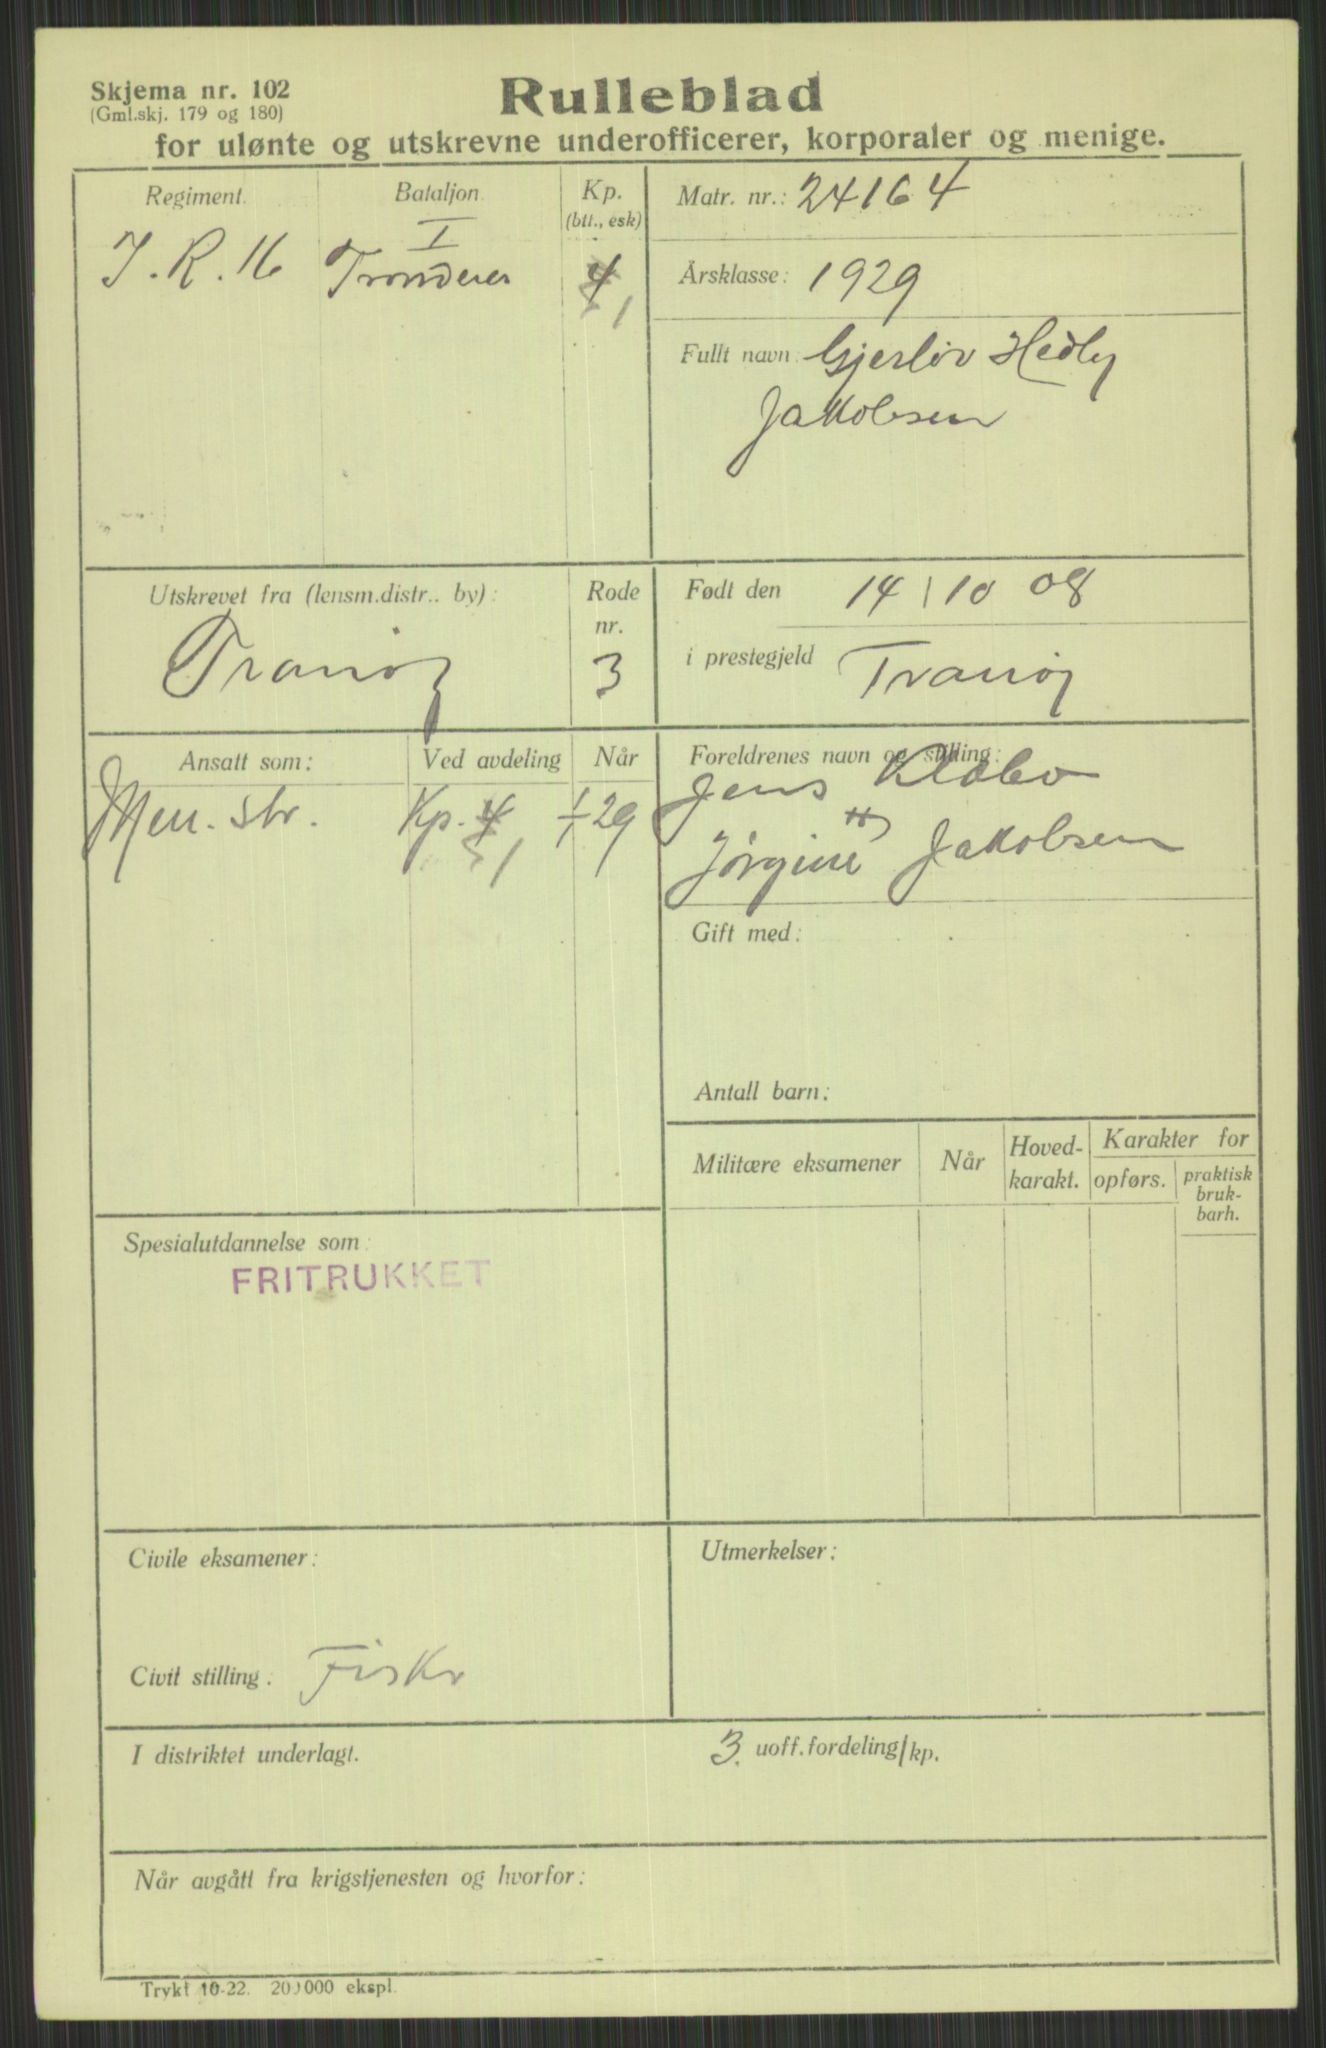 Skjema nr. 102
(Gml.skj. 179 og 180)
Rulleblad
for ulønte og utskrevne underofficerer, korporaler og menige.
Regiment.
Bataljon
Kp.
(btt., esk)
I. R. 16
I
4
1
Matr. nr.: 24164
Årsklasse: 1929
Fullt navn: Gjerløv Hedly
Jakobsen
Utskrevet fra (lensm.distr.. by):
Tranøy
Rode
nr.
3
Født den 14/10 08
i prestegjeld Tranøy
Ansatt som:
Ved avdeling
Når
Men. str.
Kp. 4
1
1/1 29
Foreldrenes navn og stilling:
Jens
Jørgine Jakobsen
Gift med:
Antall barn:
Militære eksamener
Når
Hoved-
karakt.
Karakter for
opførs.
praktisk
bruk-
barh.
Spesialutdannelse som:
FRITRUKKET
Civile eksamener:
Civil stilling: Fiskr
Utmerkelser:
I distriktet underlagt.
3. uoff.fordeling/kp.
Når avgått fra krigstjenesten og hvorfor:
Trykt 10-22. 200 000 ekspl.